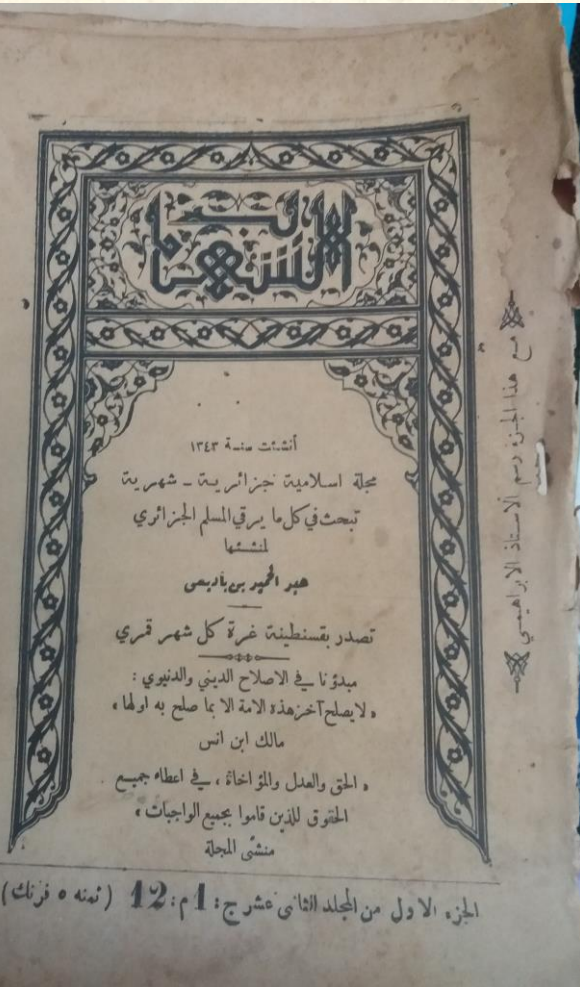 الشهاب
أنشئت سنة ١٣٤٣
مجلة اسلامية جزائرية - شهرية
تبحث في كل ما يرقي المسلم الجزائري
لمنشئها
عبد الحميد بن باديس
تصدر بقسنطينة غرة كل شهر قمري
مبدؤنا في الاصلاح الديني والدنيوي :
« لا يصلح آخر هذه الامة الا بما صلح به اولها »
مالك ابن انس
« الحق والعدل والمؤاخاة ، في اعطاء جميع
الحقوق للذين قاموا بجميع الواجبات »
منشئ المجلة
الجزء الاول من المجلد الثاني عشر ج : 1 م : 12 (ثمنه ٥ فرنك)
مع هذا الجزء رسم الاستاذ الابراهيمي